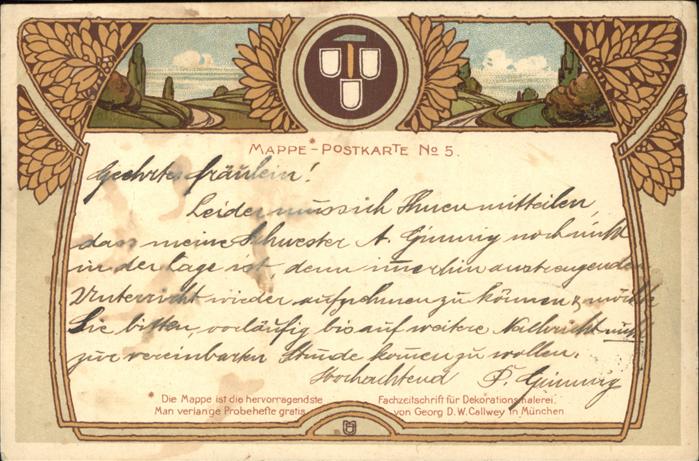 MAPPE-POSTKARTE No 5.
Geehrtes Fräulein!
Leider muss ich Ihnen mitteilen,
dass meine Schwester A. noch nicht
in der Lage ist, den immerhin anstrengenden
Unterricht wieder aufnehmen zu können & möchte
Sie bitten, vorläufig bis auf weitere Nachricht nicht
zur vereinbarten Stunde kommen zu wollen.
Hochachtend F.
Die Mappe ist die hervorragendste Fachzeitschrift für Dekorationsmalerei.
Man verlange Probehefte gratis von Georg D. W. Callwey in München